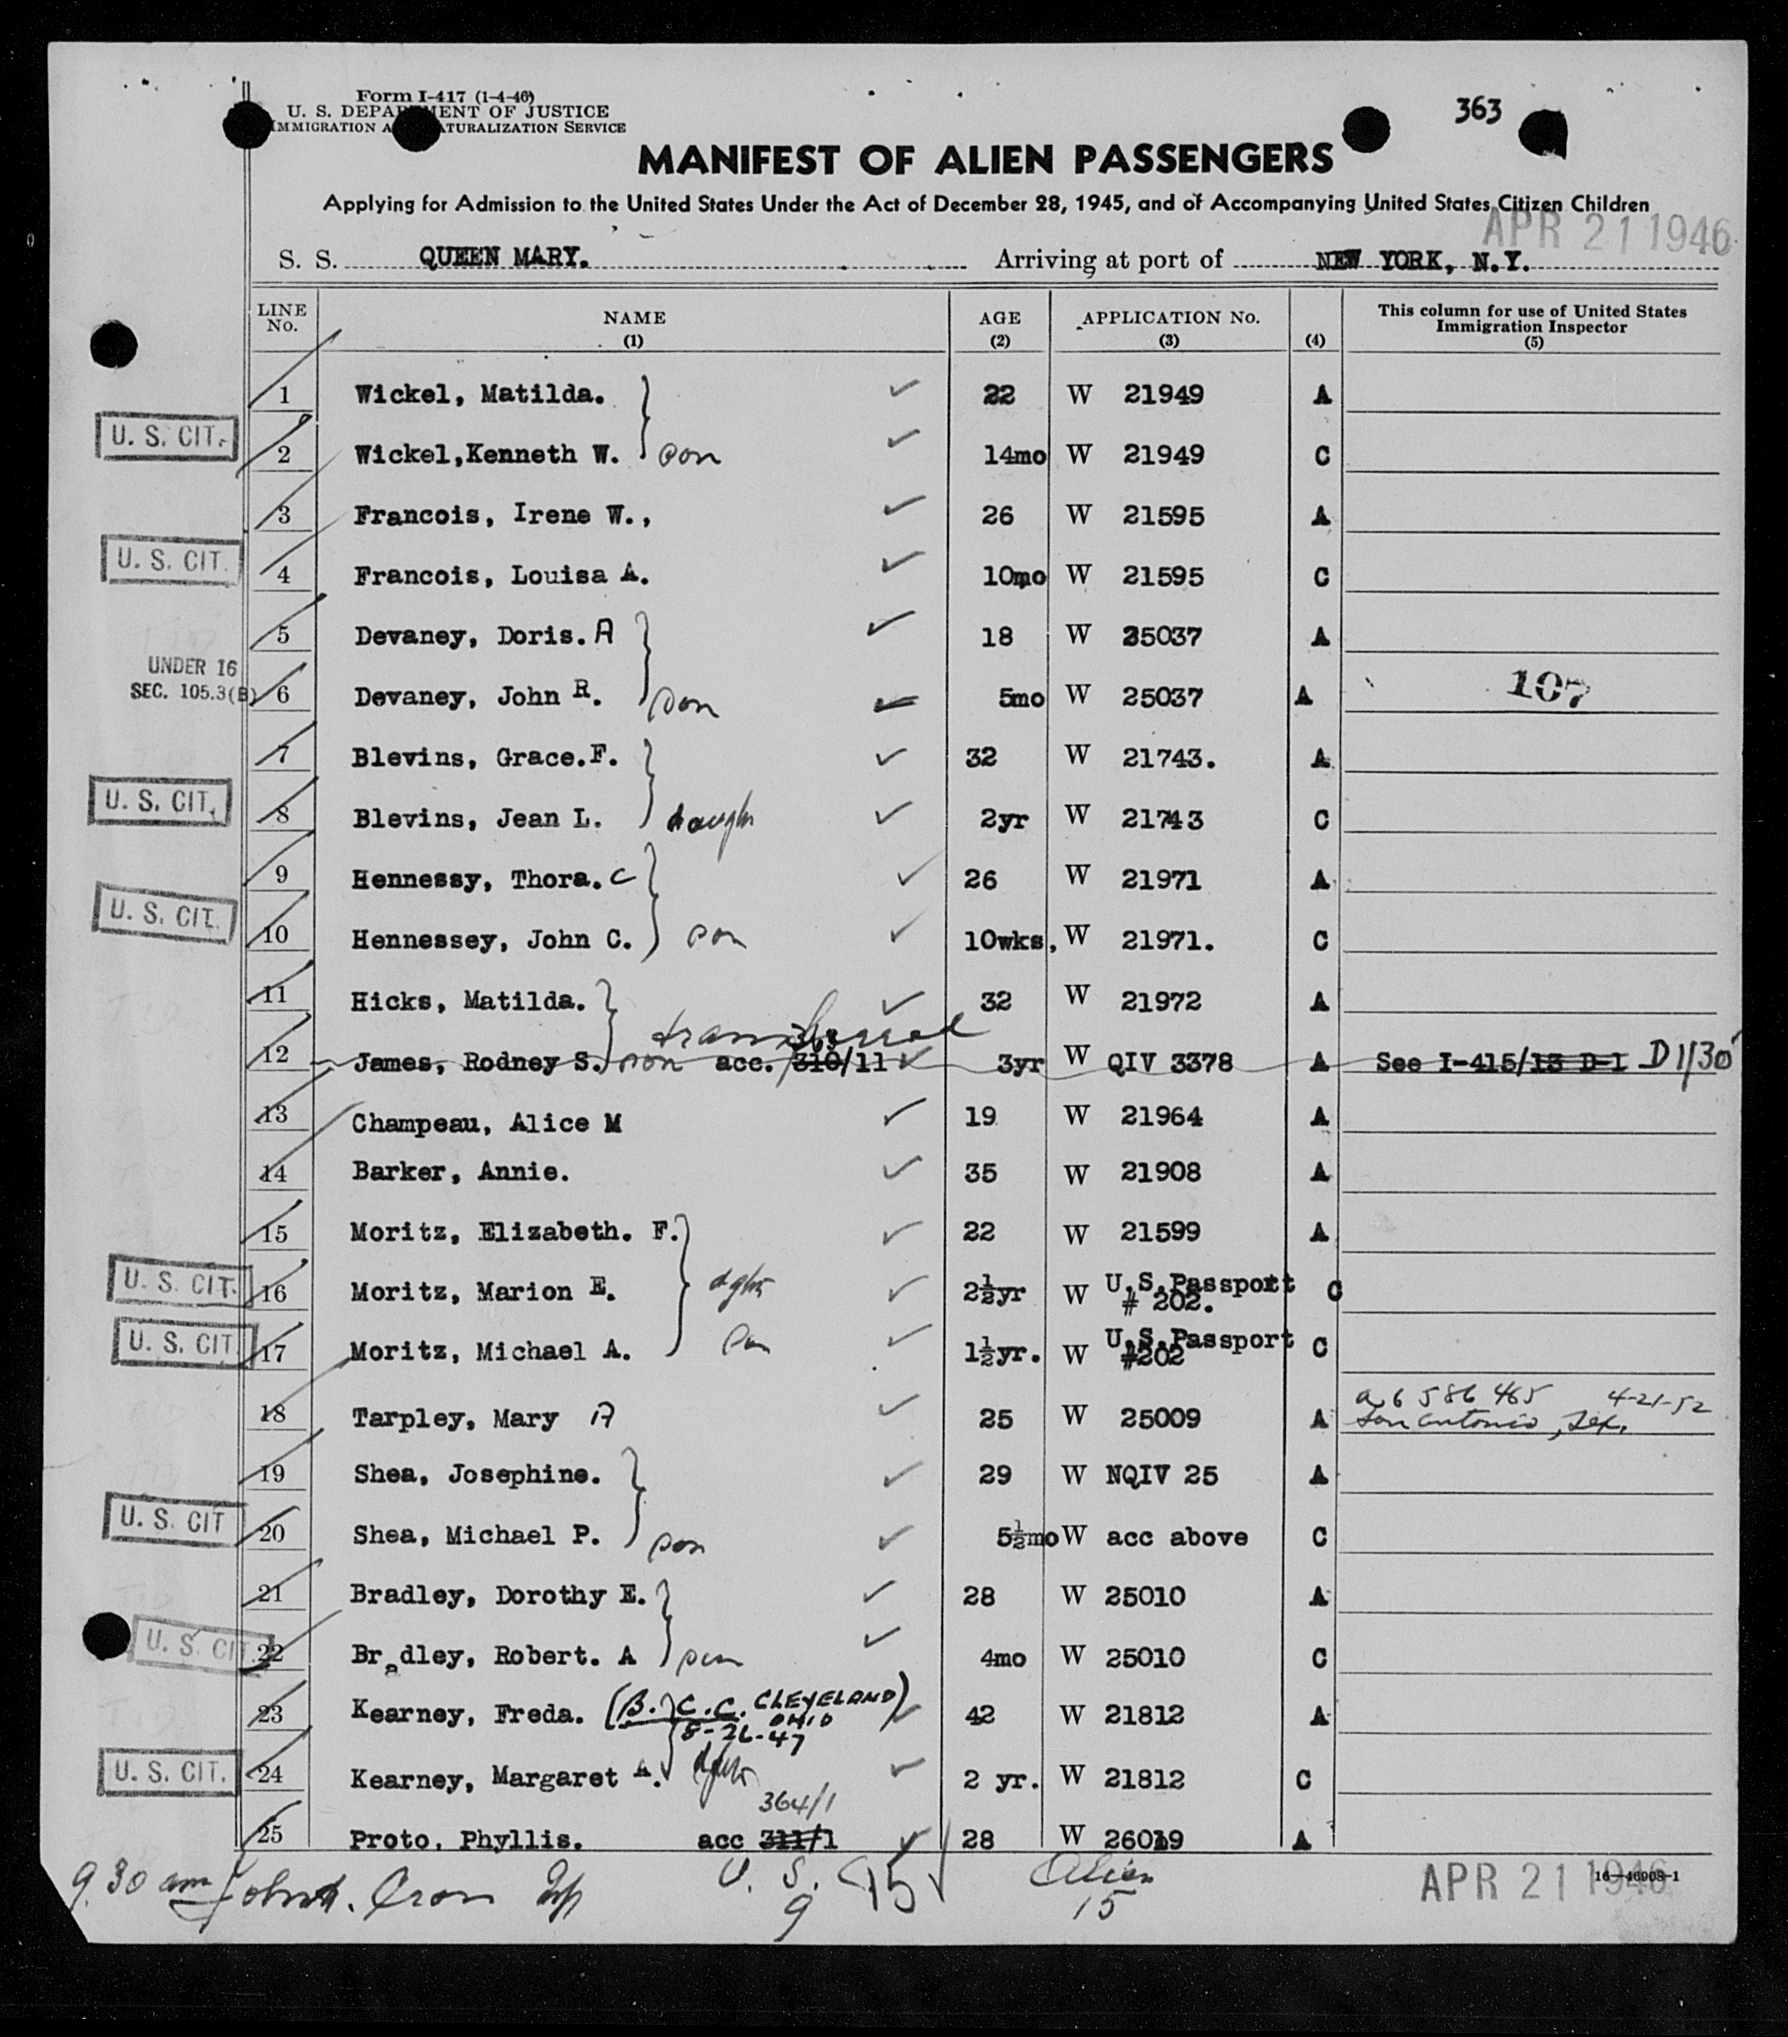 Form I-417 (1-4-46)
U. S. DEPARTMENT OF JUSTICE
IMMIGRATION AND NATURALIZATION SERVICE
363
MANIFEST OF ALIEN PASSENGERS
Applying for Admission to the United States Under the Act of December 28, 1945, and of Accompanying United States Citizen Children
APR 21 1946
S. S. QUEEN MARY. Arriving at port of NEW YORK, N.Y.
LINE No. NAME (1) AGE (2) APPLICATION No. (3) (4) This column for use of United States Immigration Inspector (5)
1 Wickel, Matilda. 22 W 21949 A
U. S. CIT. 2 Wickel,Kenneth W. son 14mo W 21949 C
3 Francois, Irene W., 26 W 21595 A
U. S. CIT. 4 Francois, Louisa A. 10mo W 21595 C
5 Devaney, Doris. A 18 W 25037 A
UNDER 16 SEC. 105.3(B) 6 Devaney, John R. son 5mo W 25037 A 107
7 Blevins, Grace.F. 32 W 21743. A
U. S. CIT. 8 Blevins, Jean L. daughr 2yr W 21743 C
9 Hennessy, Thora. C 26 W 21971 A
U. S. CIT. 10 Hennessey, John C. son 10wks, W 21971. C
11 Hicks, Matilda. 32 W 21972 A
transferred
12 James, Rodney S. son acc. 363 310/11 3yr W QIV 3378 A See I-415/13 D-1 D1/30
13 Champeau, Alice M 19 W 21964 A
14 Barker, Annie. 35 W 21908 A
15 Moritz, Elizabeth. F. 22 W 21599 A
U. S. CIT. 16 Moritz, Marion E. dghtr 2½yr W U.S.Passport # 202. C
U. S. CIT. 17 Moritz, Michael A. son 1½yr. W U.S.Passport #202 C
18 Tarpley, Mary A 25 W 25009 A a 6 586 465 4-21-52 San Antonio, Tex.
19 Shea, Josephine. 29 W NQIV 25 A
U. S. CIT 20 Shea, Michael P. son 5½mo W acc above C
21 Bradley, Dorothy E. 28 W 25010 A
U. S. CIT. 22 Bradley, Robert. A son 4mo W 25010 C
23 Kearney, Freda. (B.) C.C. CLEVELAND OHIO 8-26-47 42 W 21812 A
U. S. CIT. 24 Kearney, Margaret A. dghtr 2 yr. W 21812 C
364/1
25 Proto, Phyllis. acc 311/1 28 W 26019 A
9.30 am U. S. 9 15 Alien 15
APR 21 1946 16—46908-1